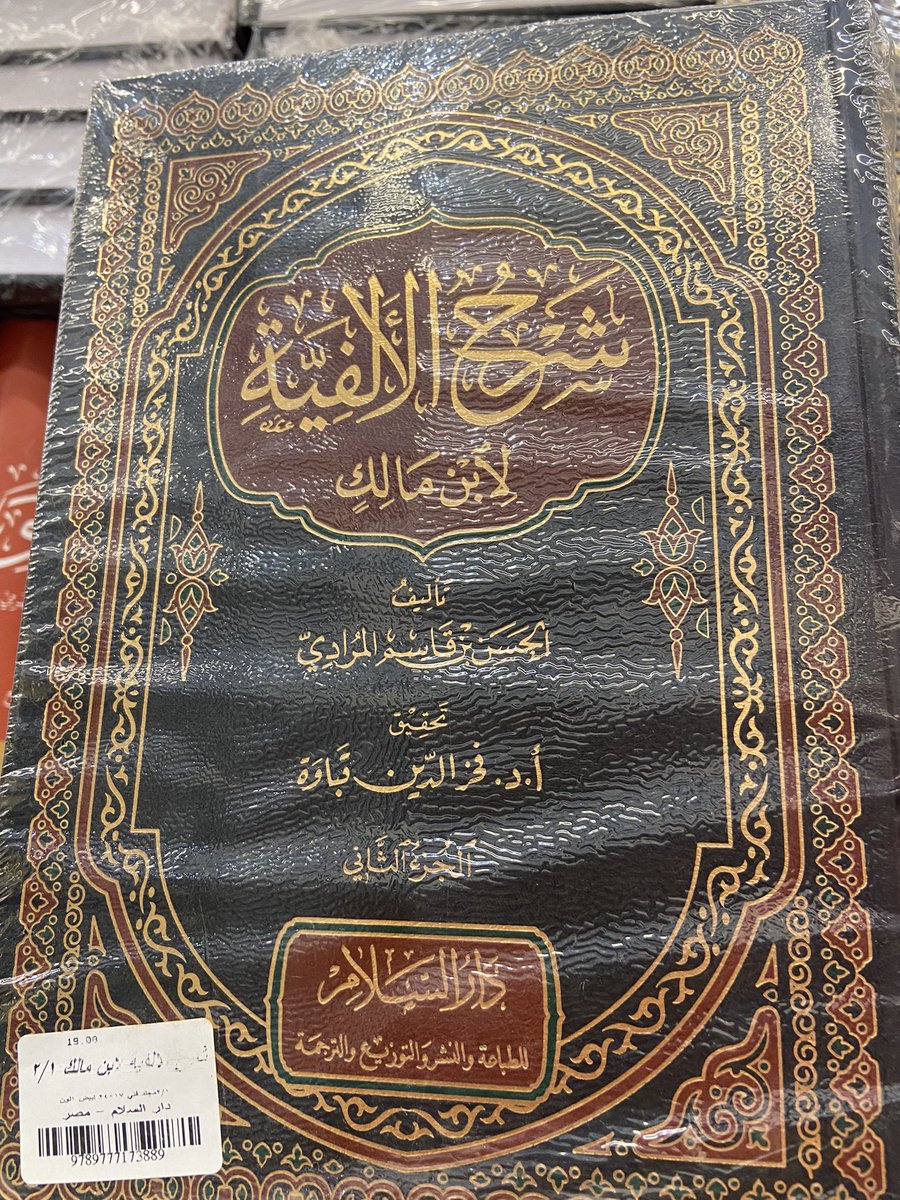 شَرْحُ الأَلْفِيَّةِ
لِابْنِ مَالِكٍ
تأليفُ
الحَسَن بن قَاسِم المُرَادِيّ
تحقيق
أ.د. فخر الدّين قباوة
الجُزءُ الثَّاني
دَارُ السَّلَامِ
للطباعة والنشر والتوزيع والترجمة
19.00
الفيه لابن مالك ٢/١
٢/١مجلد فني ١٧-٢٤ ابيض الون
دار السلام - مصر
9789777173889